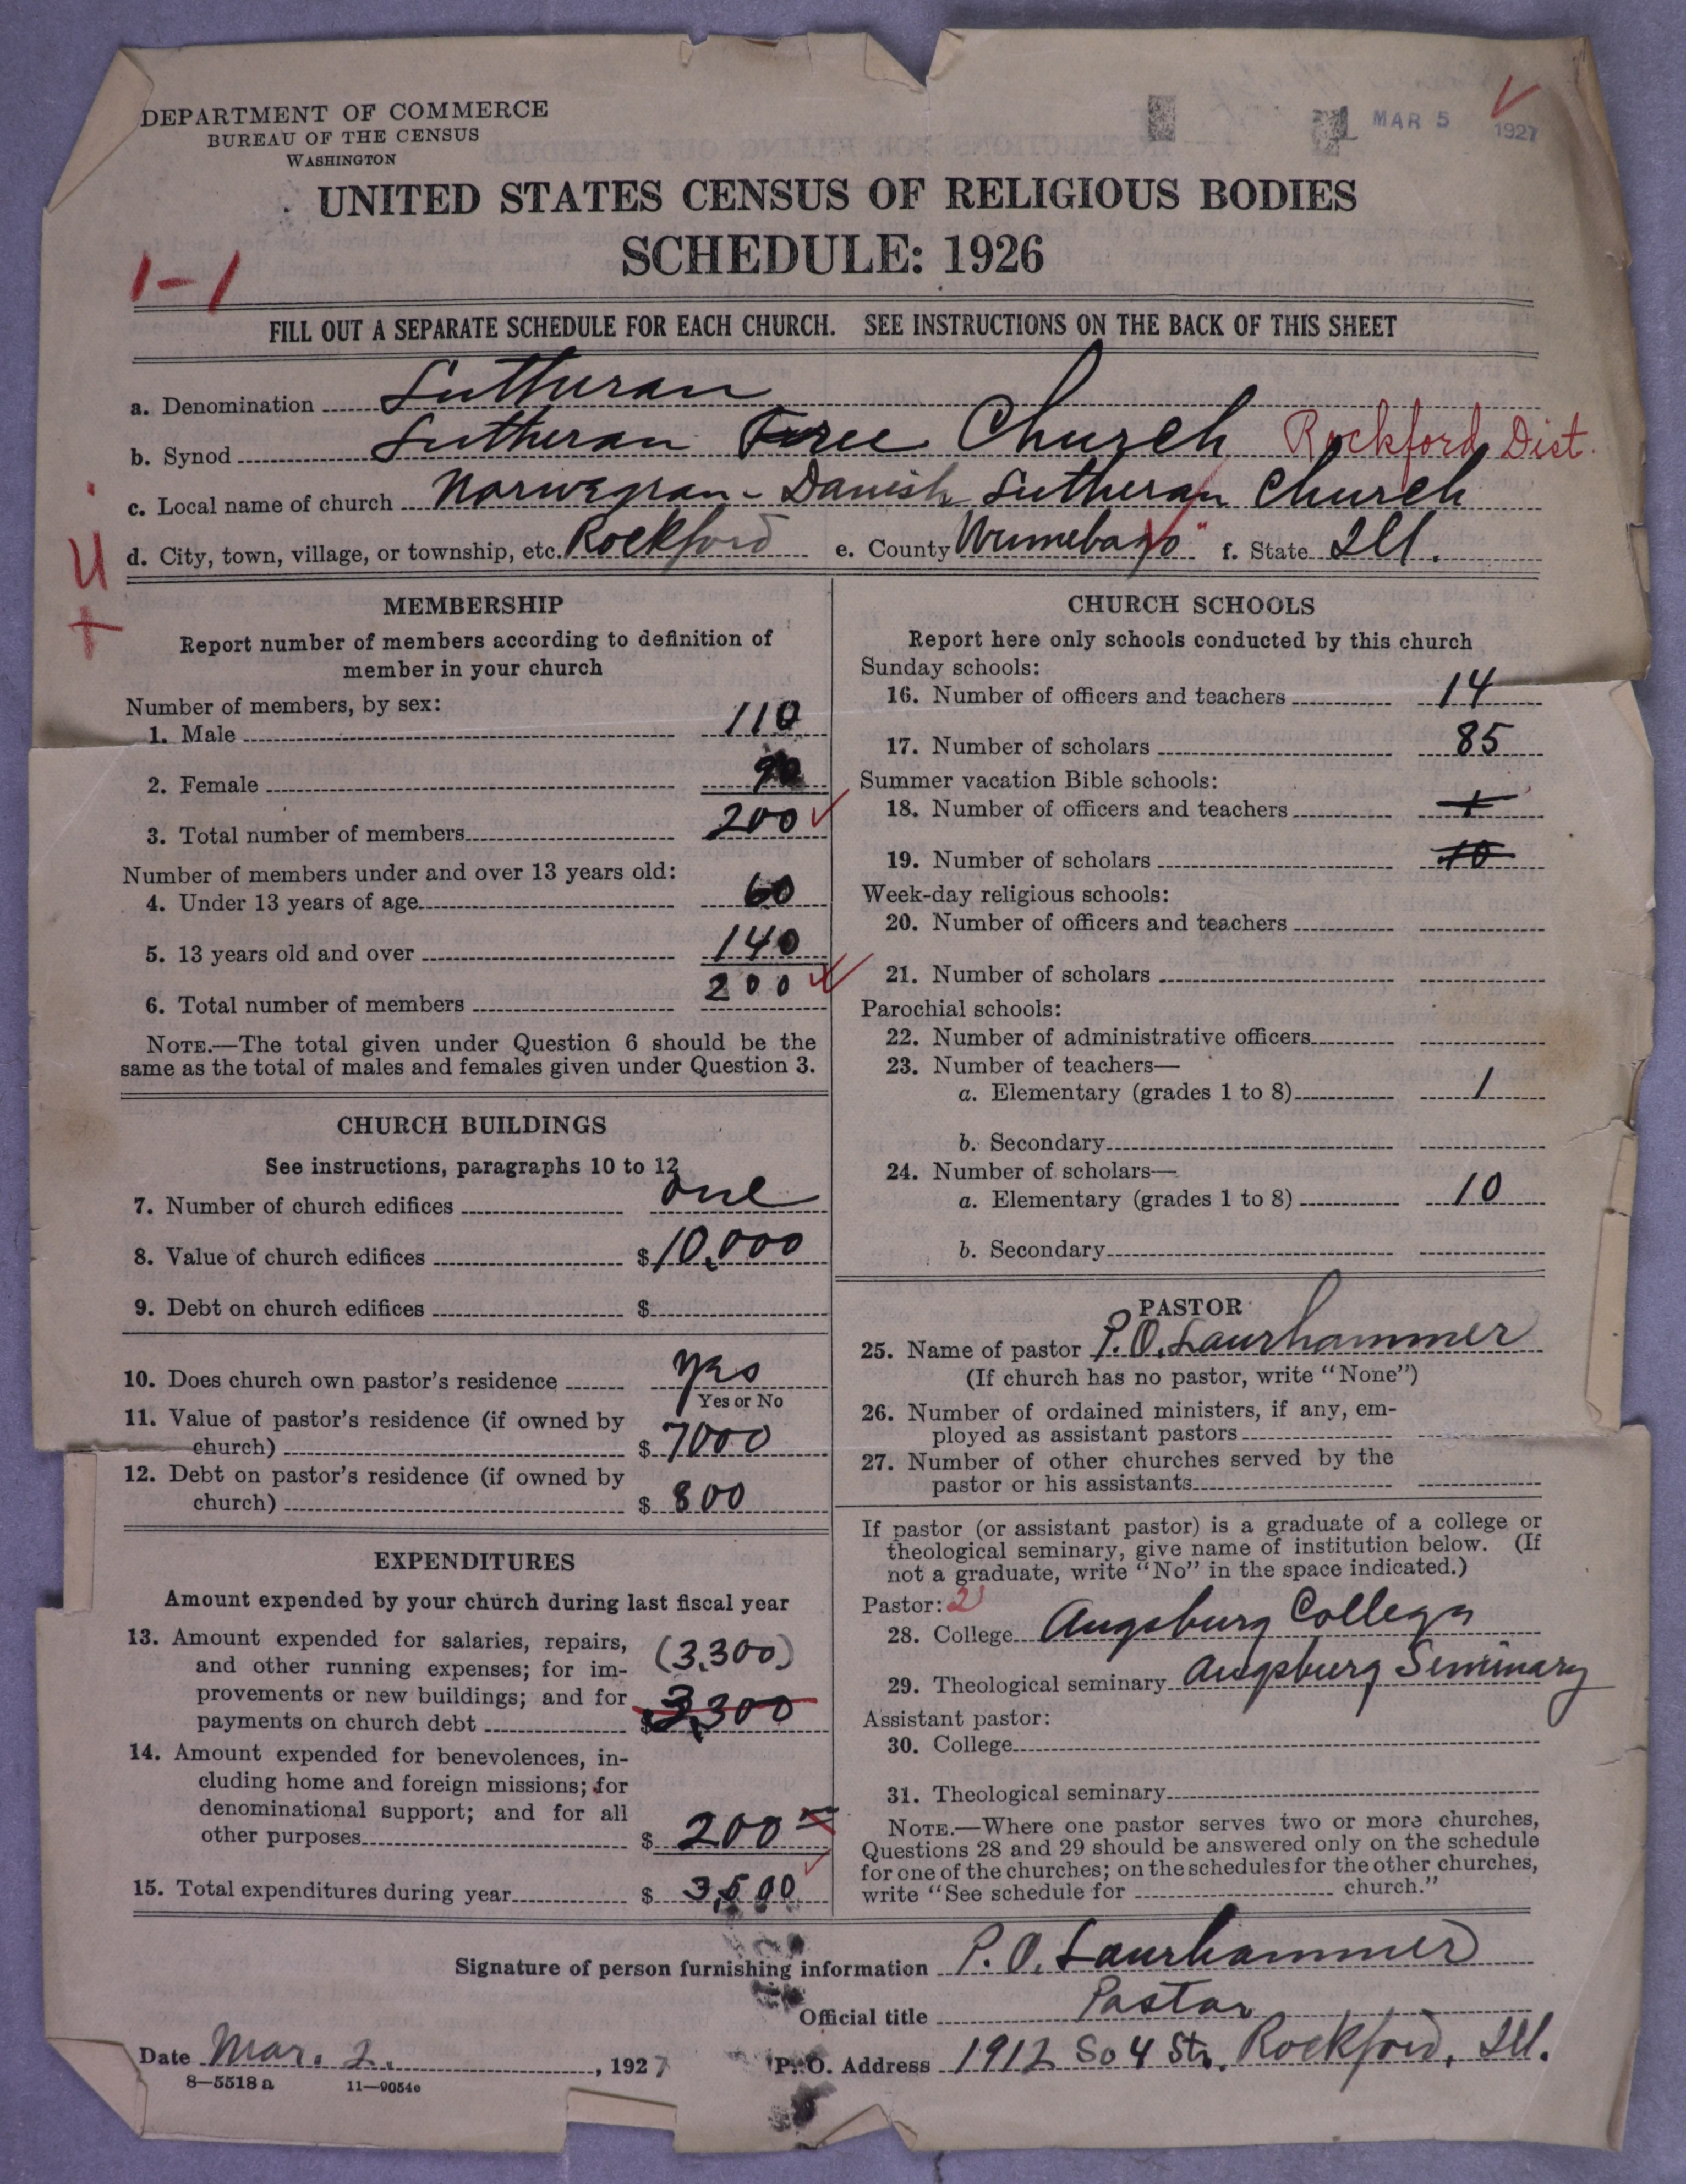 DEPARTMENT OF COMMERCE
BUREAU OF THE CENSUS
WASHINGTON
MAR 5 1927
UNITED STATES CENSUS OF RELIGIOUS BODIES
SCHEDULE: 1926
1-1
FILL OUT A SEPARATE SCHEDULE FOR EACH CHURCH. SEE INSTRUCTIONS ON THE BACK OF THIS SHEET
a. Denomination Lutheran
b. Synod Lutheran Free Church Rockford Dist.
c. Local name of church Norwegian-Danish Lutheran Church
d. City, town, village, or township, etc. Rockford e. County Winnebago f. State Ill.
U
+
MEMBERSHIP
Report number of members according to definition of
member in your church
Number of members, by sex:
1. Male 110
2. Female 90
3. Total number of members 200
Number of members under and over 13 years old:
4. Under 13 years of age 60
5. 13 years old and over 140
6. Total number of members 200
NOTE.—The total given under Question 6 should be the
same as the total of males and females given under Question 3.
CHURCH BUILDINGS
See instructions, paragraphs 10 to 12
7. Number of church edifices one
8. Value of church edifices $10,000
9. Debt on church edifices $
10. Does church own pastor's residence yes
Yes or No
11. Value of pastor's residence (if owned by
church) $ 7000
12. Debt on pastor's residence (if owned by
church) $ 800
EXPENDITURES
Amount expended by your church during last fiscal year
13. Amount expended for salaries, repairs,
and other running expenses; for im-
provements or new buildings; and for
payments on church debt (3,300)
$3,300
14. Amount expended for benevolences, in-
cluding home and foreign missions; for
denominational support; and for all
other purposes $ 200
15. Total expenditures during year $ 3,500
CHURCH SCHOOLS
Report here only schools conducted by this church
Sunday schools:
16. Number of officers and teachers 14
17. Number of scholars 85
Summer vacation Bible schools:
18. Number of officers and teachers 1
19. Number of scholars 10
Week-day religious schools:
20. Number of officers and teachers
21. Number of scholars
Parochial schools:
22. Number of administrative officers
23. Number of teachers—
a. Elementary (grades 1 to 8) 1
b. Secondary
24. Number of scholars—
a. Elementary (grades 1 to 8) 10
b. Secondary
PASTOR
25. Name of pastor P. O. Laurhammer
(If church has no pastor, write "None")
26. Number of ordained ministers, if any, em-
ployed as assistant pastors
27. Number of other churches served by the
pastor or his assistants
If pastor (or assistant pastor) is a graduate of a college or
theological seminary, give name of institution below. (If
not a graduate, write "No" in the space indicated.)
Pastor: 2
28. College Augsburg College
29. Theological seminary Augsburg Seminary
Assistant pastor:
30. College
31. Theological seminary
NOTE.—Where one pastor serves two or more churches,
Questions 28 and 29 should be answered only on the schedule
for one of the churches; on the schedules for the other churches,
write "See schedule for church."
Signature of person furnishing information P. O. Laurhammer
Official title Pastor
Date Mar. 2. , 1927 P. O. Address 1912 So 4 Str. Rockford, Ill.
8—5518 a 11—9054o